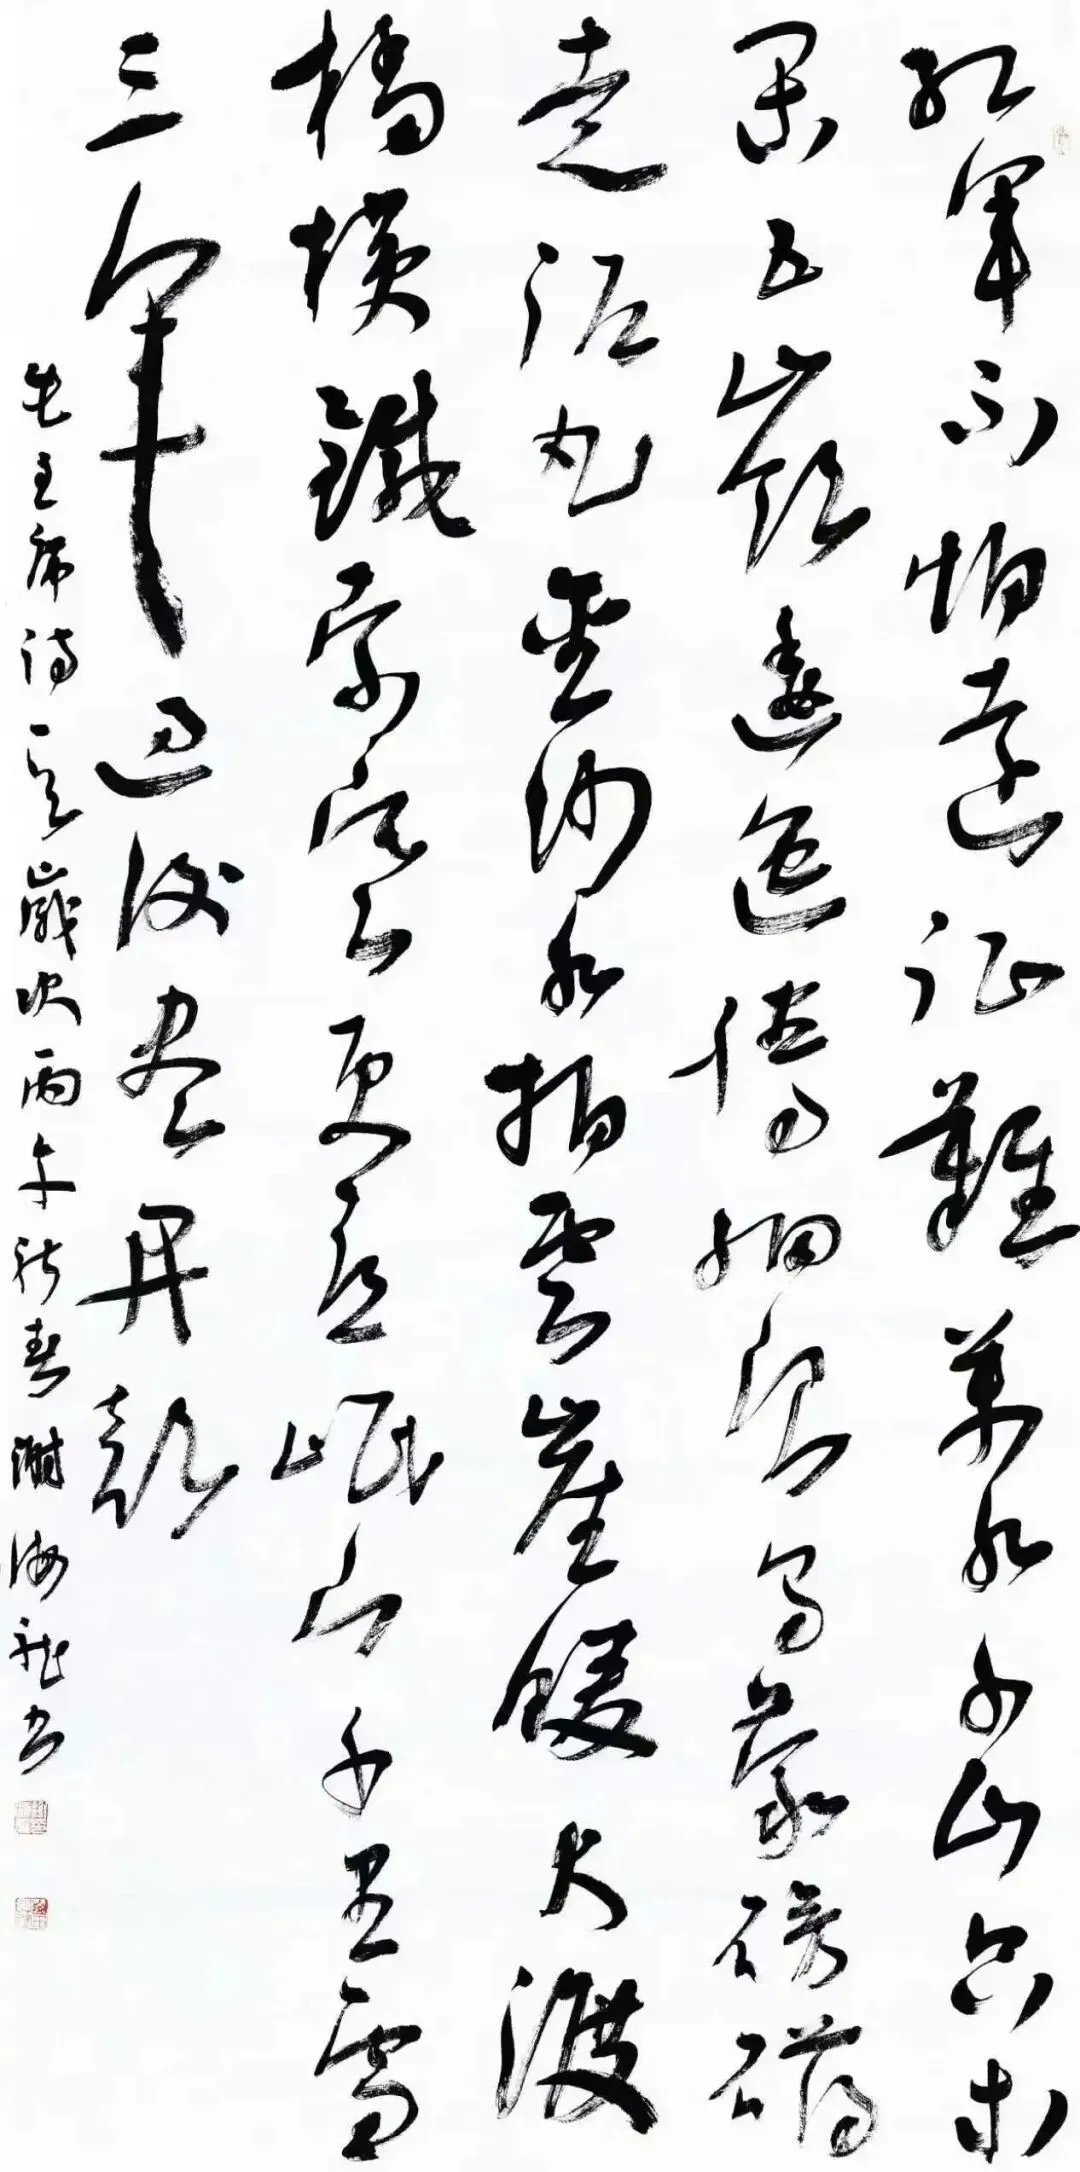 红军不怕远征難萬水千山只等
闲五嶺逶迤腾细浪乌蒙磅礴
走泥丸金沙水拍雲崖暖大渡
橋横鐵索寒更喜岷山千里雪
三军过后尽开颜
毛主席诗一首岁次丙午新春海龙书